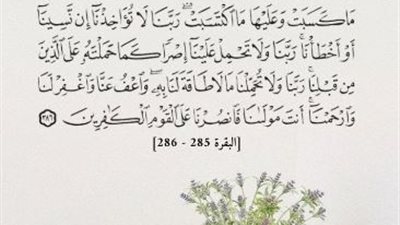 مَا كَسَبَتْ وَعَلَيْهَا مَا ٱكْتَسَبَتْ ۗ رَبَّنَا لَا تُؤَاخِذْنَآ إِن نَّسِينَآ
أَوْ أَخْطَأْنَا ۚ رَبَّنَا وَلَا تَحْمِلْ عَلَيْنَآ إِصْرًا كَمَا حَمَلْتَهُۥ عَلَى ٱلَّذِينَ
مِن قَبْلِنَا ۚ رَبَّنَا وَلَا تُحَمِّلْنَا مَا لَا طَاقَةَ لَنَا بِهِۦ ۖ وَٱعْفُ عَنَّا وَٱغْفِرْ لَنَا
وَٱرْحَمْنَآ ۚ أَنتَ مَوْلَىٰنَا فَٱنصُرْنَا عَلَى ٱلْقَوْمِ ٱلْكَٰفِرِينَ ٢٨٦
[البقرة 285 - 286]